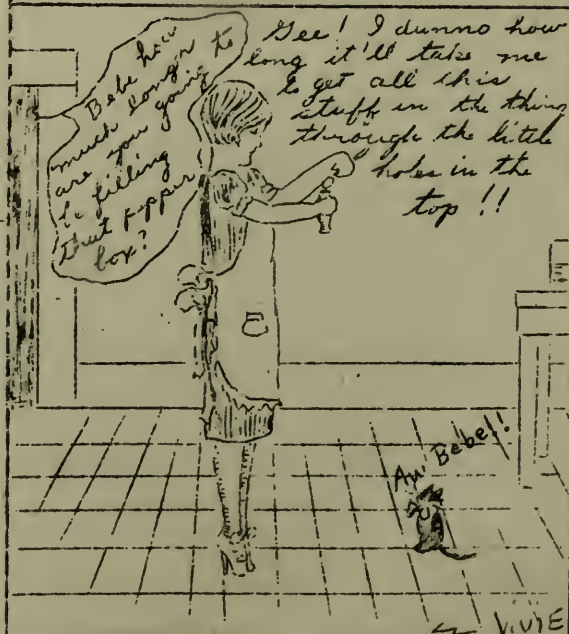 Bebe how
much longer
are you going to
be filling
that pepper
box?
Gee! I dunno how
long it'll take me
to get all this
stuff in the thing
through the little
holes in the
top!!
Aw Bebe!!